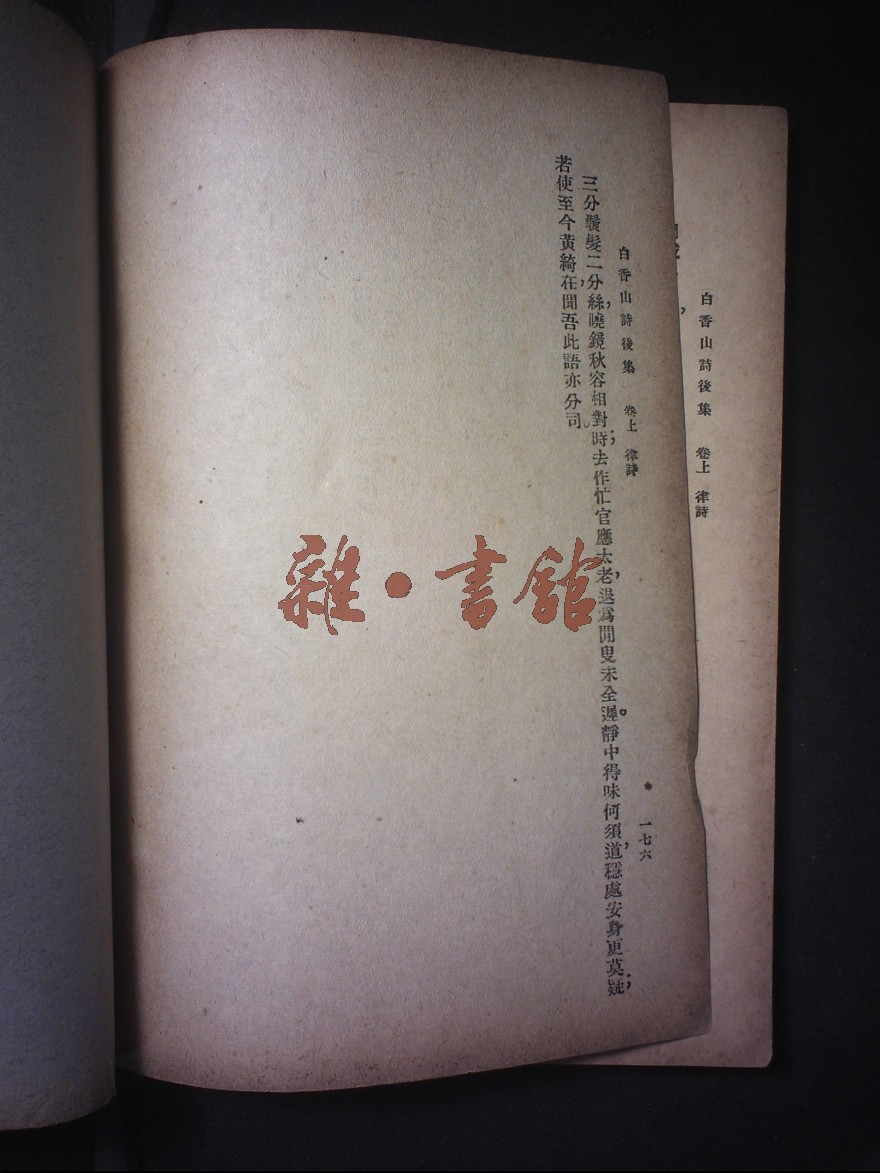 白香山詩後集 卷上 律詩
白香山詩後集 卷上 律詩 一七六
三分鬢髮二分絲,曉鏡秋容相對時;去作忙官應太老,退爲閒叟未全遲。靜中得味何須道,穩處安身更莫疑;
若使至今黃綺在,聞吾此語亦分司。
雜·書館